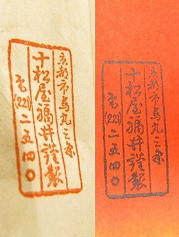 京都市烏丸三条
十松屋福井謹製
電(221)二五四〇
京都市烏丸三条
十松屋福井謹製
電(221)二五四〇